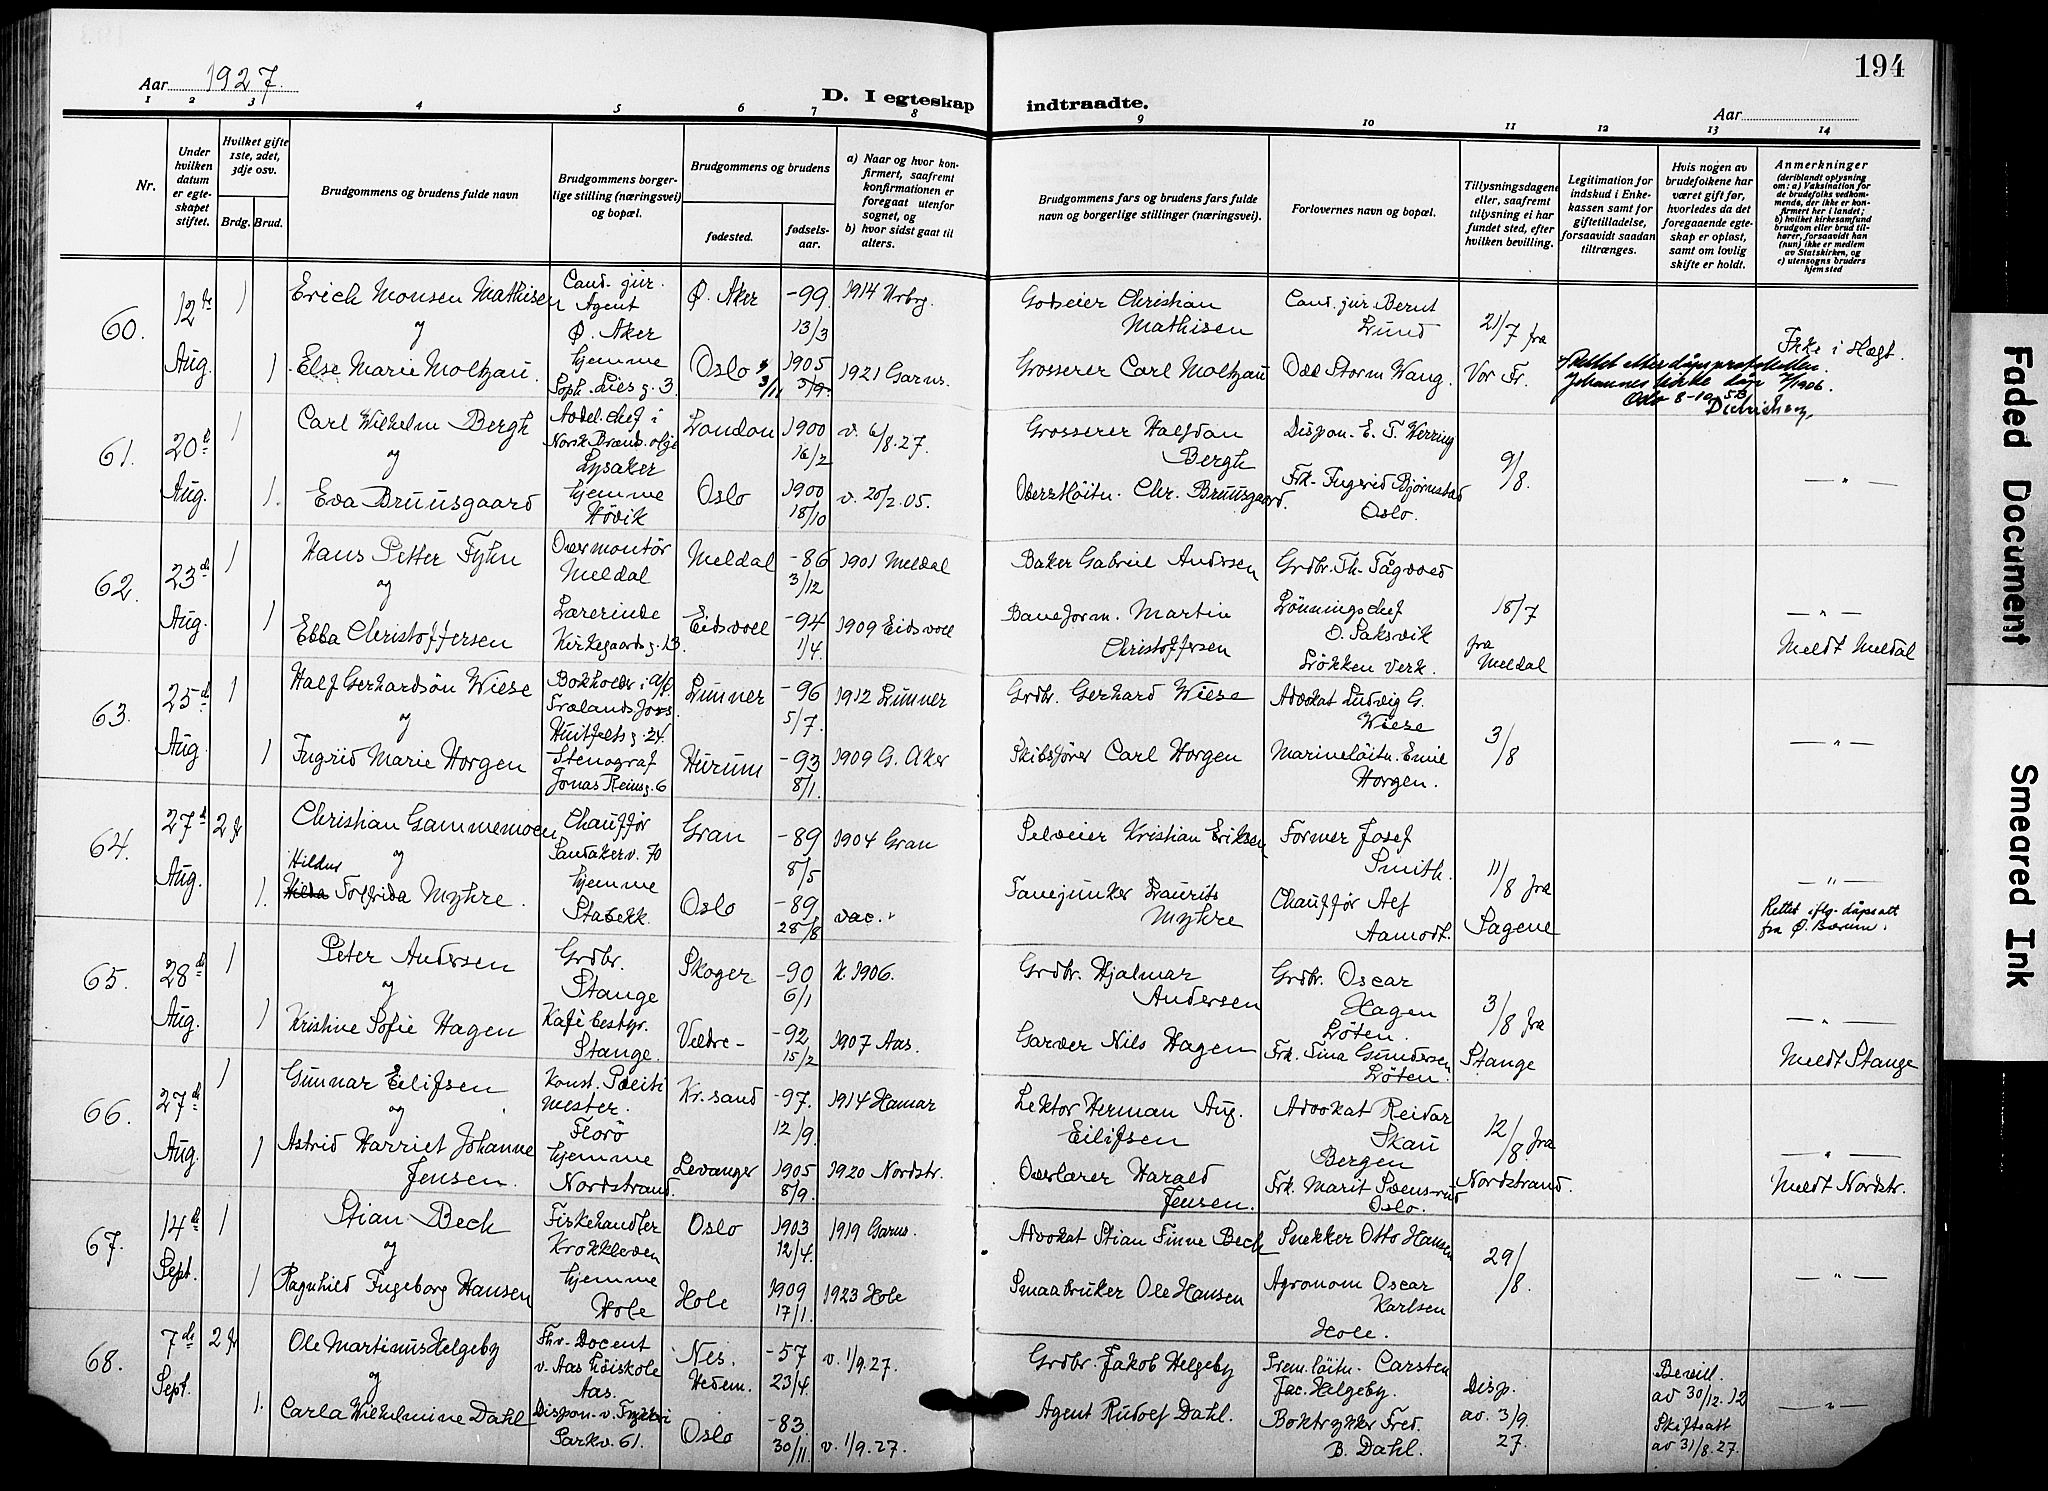 194
Aar 1927.
D. I egteskap indtraadte.
Aar
1 2 3 4 5 6 7 8 9 10 11 12 13 14
Nr.
Under hvilken datum er egteskapet stiftet.
Hvilket gifte 1ste, 2det, 3dje osv.
Brdg. Brud.
Brudgommens og brudens fulde navn
Brudgommens borgerlige stilling (næringsvei) og bopæl.
Brudgommens og brudens
fødested.
fødselsaar.
a) Naar og hvor konfirmert, saafremt konfirmationen er foregaat utenfor sognet, og
b) hvor sidst gaat til alters.
Brudgommens fars og brudens fars fulde navn og borgerlige stillinger (næringsvei).
Forlovernes navn og bopæl.
Tillysningsdagene eller, saafremt tillysning ei har fundet sted, efter hvilken bevilling.
Legitimation for indskud i Enkekassen samt for giftetilladelse, forsaavidt saadan tiltrænges.
Hvis nogen av brudefolkene har været gift før, hvorledes da det foregaaende egteskap er opløst, samt om lovlig skifte er holdt.
Anmerkninger (deriblandt oplysning om: a) Vaksination for de brudefolks vedkommende, der ikke er konfirmert her i landet; b) hvilket kirkesamfund brudgom eller brud tilhører, forsaavidt han (hun) ikke er medlem av Statskirken, og c) utensogns bruders hjemsted
60.
12te Aug.
1
Erich Monsen Mathisen
og
Cand. jur.
Agent
Ø. Aker
Ø. Aker
-99
13/3
1914 Urbg.
Godseier Christian
Mathisen
Cand. jur. Bernt
Lund
21/7 fra
Vor Fr.
Ikke i Slegt.
1
Else Marie Moltzau.
hjemme
Soph. Lies g. 3
Oslo
3/11
1905
3/9.
1921 Garns.
Grosserer Carl Moltzau
Odd Storm Wang.
Rettet etter dåpsprotokollen
Johannes kirke dåp 7/1906.
Oslo 8-10-53
61.
20d Aug.
1
Carl Wilhelm Bergh
og
Avdel. chef i
Norsk Brænd. olje
Lysaker
London
1900
16/2
v. 6/8.27.
Grosserer Halfdan
Bergh
Dispon. E. T. Werring
9/8.
1.
Eva Bruusgaard
hjemme
Høvik
Oslo
1900
18/10
v. 20/2.05.
Oberstløitn. Chr. Bruusgaard.
Frk. Ingrid Bjørnstad
Oslo.
— " —
62.
23d Aug.
1
Hans Petter Fyhn
og
Overmontør
Meldal
Meldal
-86
3/12
1901 Meldal
Baker Gabriel Andersen
Grdbr. Th. Fågvoed
18/7
fra
Meldal
— " —
Meldt Meldal
1
Ebba Christoffersen
Lærerinde
Kirkegaards g. 13.
Eidsvoll
-94
1/4.
1909 Eidsvoll
Baneform. Martin
Christoffersen
Lønningschef
O. Saksvik
Løkken Verk.
63.
25d Aug.
1
Half Gerhardsøn Wiese
og
Bokholder i A/S
Frølands Foss.
Huitfelts g. 24.
Lunner
-96
5/7.
1912 Lunner
Grdbr. Gerhard Wiese
Advokat Ludvig G.
Wiese
3/8
— " —
1
Ingrid Marie Horgen
Stenograf
Jonas Reins g. 6
Hurum
-93
8/1.
1909 G. Aker
Skibsfører Carl Horgen
Marineløitn. Emil
Horgen.
64.
27d Aug.
2 g
Christian Gammemoen
og
Chauffør
Sandakerv. 70
Gran
-89
8/5
1904 Gran
Selveier Kristian Eriksen
Former Josef
Smith.
11/8 fra
Sagene
— " —
1.
Hildur
Hilda Torfrida Myhre.
hjemme
Stabekk.
Oslo
-89
28/8
vac.
Fanejunker Laurits
Myhre
Chauffør Alf
Aamodt.
Rettet iflg. dåpsatt
fra Ø. Bærum.
65.
28de Aug.
1
Peter Andersen
og
Grdbr.
Stange
Skoger
-90
6/1
k. 1906.
Grdbr. Hjalmar
Andersen
Grdbr. Oscar
Hagen
Løten.
3/8 fra
Stange
— " —
Meldt Stange
1
Kristine Sofie Hagen
Kafébestyr.
Stange.
Veldre -
-92
15/2
1907 Aas.
Garver Nils Hagen
Frk. Tina Gundersen
Løten.
66.
27de Aug.
1
Gunnar Eilifsen
og
Konst. Politi
mester.
Florø
Kr. sand
-97.
12/9.
1914 Hamar
Lektor Herman Aug.
Eilifsen
Advokat Reidar
Skau
Bergen
12/8 fra
Nordstrand.
— " —
Meldt Nordstr.
1
Astrid Harriet Johanne
Jensen.
hjemme
Nordstrand.
Levanger
1905
8/9.
1920 Nordstr.
Overlærer Harald
Jensen.
Frk. Marit Svensrud
Oslo.
67.
14d Sept.
1
Stian Bech
og
Fiskehandler
Krokkleven
Oslo
1903
12/4.
1919 Garns.
Advokat Stian Finne Bech
Snekker Otto Hansen
29/8.
— " —
1
Ragnhild Ingeborg Hansen
hjemme
Hole
Hole
1909
17/1.
1923 Hole
Smaabruker Ole Hansen
Agronom Oscar
Karlsen
Hole.
68.
7de Sept.
2 g
Ole Martinus Helgeby
og
Fhv. Docent
v. Aas høiskole
Aas.
Nes.
Hedem.
-57
23/4.
v. 1/9.27.
Grdbr. Jakob Helgeby
Prem. løitn. Carsten
Jac. Helgeby.
Disp.
av. 3/9.
27.
Bevill.
av 30/12.12
Skifteatt
av 31/8.27.
— " —
1.
Carla Wilhelmine Dahl
Dispon. v. Trykkeri
Parkv. 61.
Oslo
-83.
30/11
v. 1/9.27.
Agent Rudolf Dahl.
Boktrykker Fred.
B. Dahl.
Faded Document
Smeared Ink